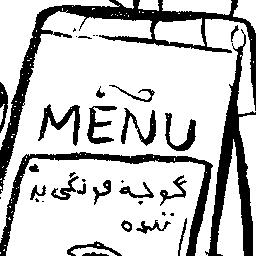 MENU
گوجه فرنگی پر
شده